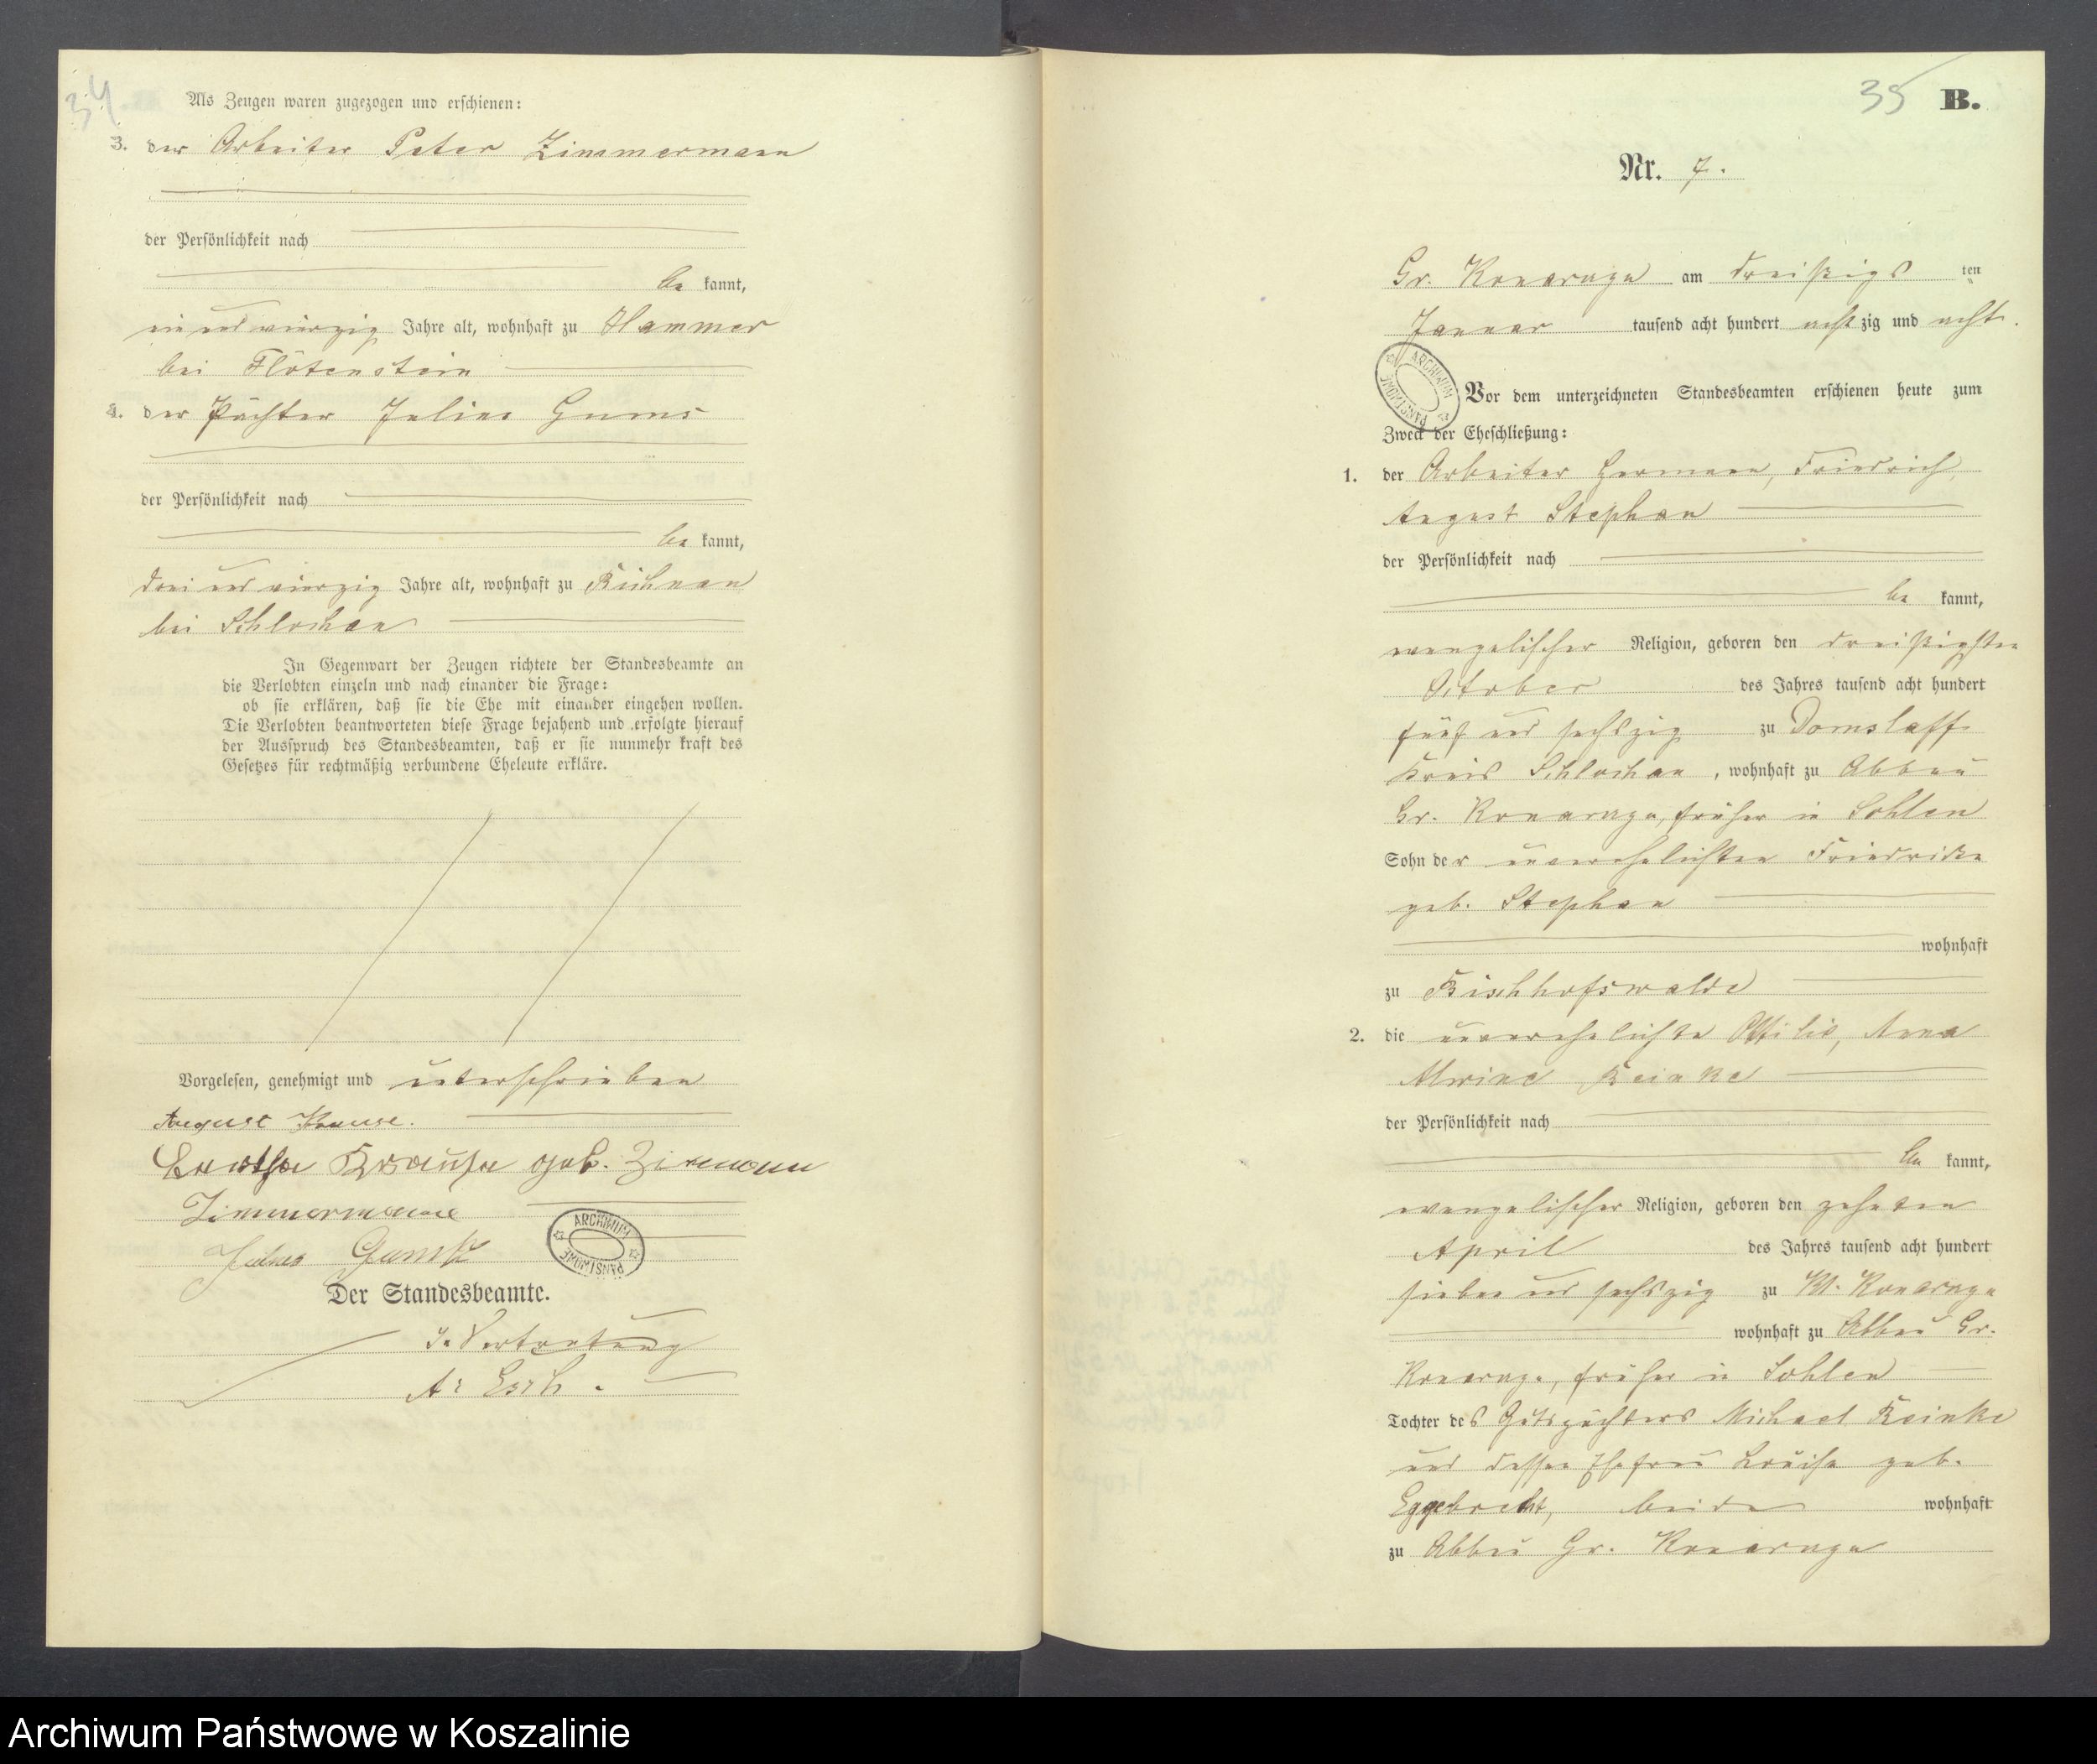 34
Als Zeugen waren zugezogen und erschienen:
3. der Arbeiter Peter Zimmermann
der Persönlichkeit nach
be kannt,
ein und vierzig Jahre alt, wohnhaft zu Hammer
bei Flötenstein
4. der Pächter Julius Gums
der Persönlichkeit nach
be kannt,
drei und vierzig Jahre alt, wohnhaft zu
bei Schlochau
In Gegenwart der Zeugen richtete der Standesbeamte an
die Verlobten einzeln und nach einander die Frage:
ob sie erklären, daß sie die Ehe mit einander eingehen wollen.
Die Verlobten beantworteten diese Frage bejahend und erfolgte hierauf
der Ausspruch des Standesbeamten, daß er sie nunmehr kraft des
Gesetzes für rechtmäßig verbundene Eheleute erkläre.
Vorgelesen, genehmigt und unterschrieben
August Krause.
Krause geb.
Zimmermann
Julius
ARCHIWUM PAŃSTWOWE
Der Standesbeamte.
In Vertretung
35 B.
Nr. 7.
Gr. Konarczyn am dreißigs ten
Januar tausend acht hundert acht zig und acht.
ARCHIWUM PAŃSTWOWE
Vor dem unterzeichneten Standesbeamten erschienen heute zum
Zweck der Eheschließung:
1. der Arbeiter Hermann, Friedrich,
August Stephan
der Persönlichkeit nach
be kannt,
evangelischer Religion, geboren den dreißigsten
October des Jahres tausend acht hundert
fünf und sechszig zu Domslaff
Kreis Schlochau, wohnhaft zu Abbau
Gr. Konarczyn, früher in Sohlen
Sohn der unverehelichten Friedricke
geb. Stephan
wohnhaft
zu Bischhofswalde
2. die unverehelichte Ottilie, Anna
Alwine Reinke
der Persönlichkeit nach
be kannt,
evangelischer Religion, geboren den zehnten
April des Jahres tausend acht hundert
sieben und sechszig zu Kl. Konarczyn
wohnhaft zu Abbau Gr.
Konarczyn, früher in Sohlen
Tochter des Gutspächters Michael Reinke
und dessen Ehefrau Louise geb.
Eggebrecht, beide wohnhaft
zu Abbau Gr. Konarczyn
Archiwum Państwowe w Koszalinie